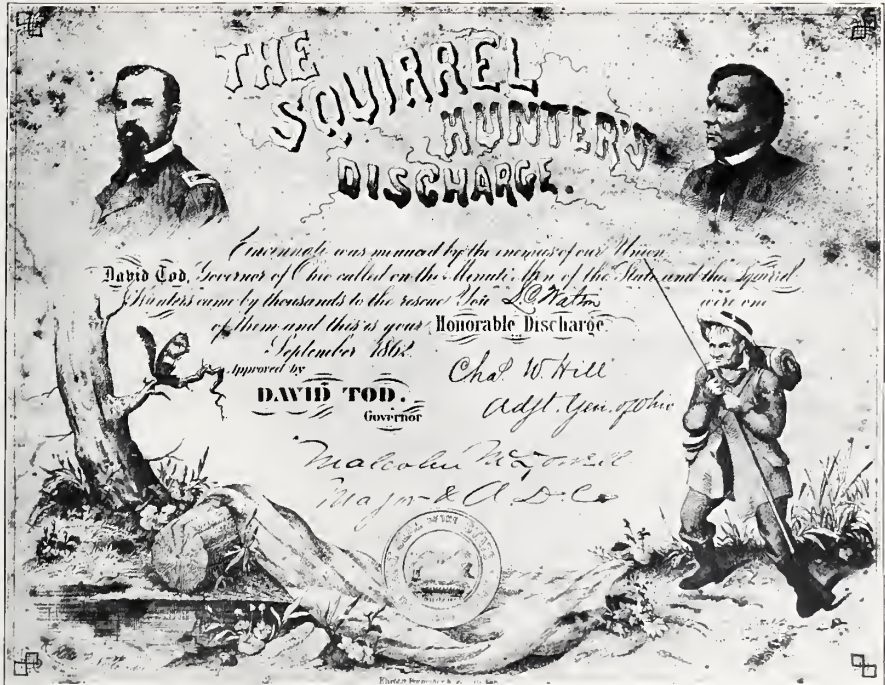 THE
SQUIRREL
HUNTER'S
DISCHARGE.
Cincinnati was menaced by the enemies of our Union
David Tod, Governor of Ohio called on the Minute Men of the State and the Squirrel
Hunters came by thousands to the rescue You L.C. Watson were one
of them and this is your Honorable Discharge
September 1862.
Approved by
Chas. W. Hill
DAVID TOD.
Adjt. Gen. of Ohio
Governor
Malcolm McDowell
Major & A.D.C.